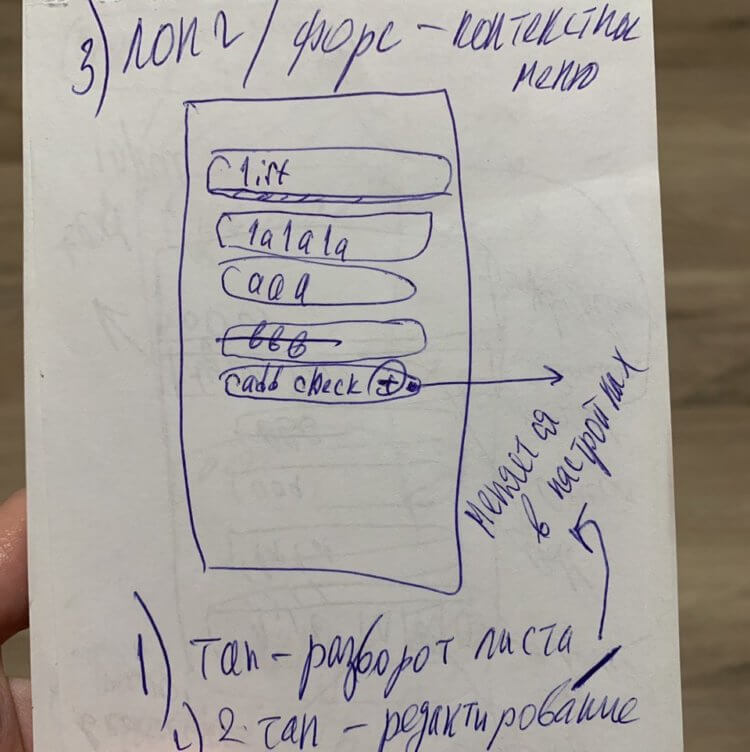 3) лонг / форс - контекстное
меню
list
lalala
aaa
bbb
add check +
меняется
в настройках
1) тап - разворот листа
2) 2 тап - редактирование